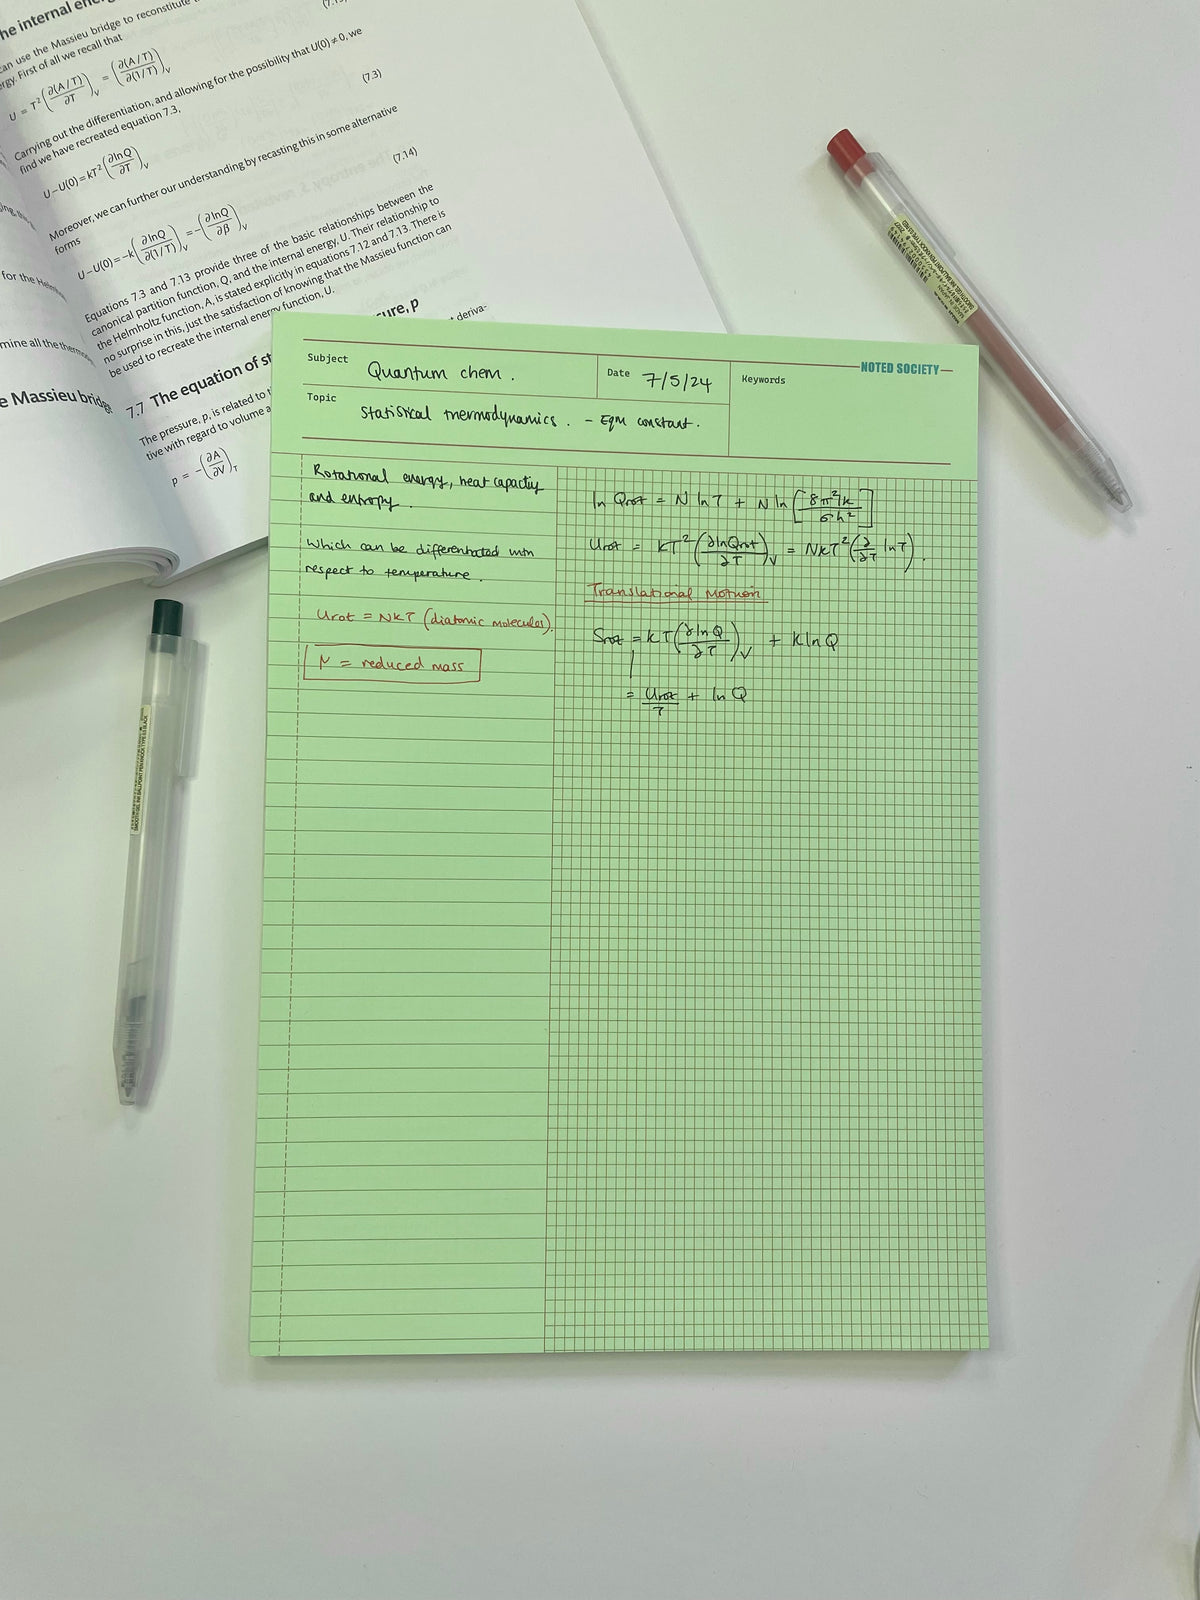 he internal ene
can use the Massieu bridge to reconstitute
rgy. First of all we recall that
U = T²(∂(A/T)/∂T)_V = (∂(A/T)/∂(1/T))_V
Carrying out the differentiation, and allowing for the possibility that U(0) ≠ 0, we
find we have recreated equation 7.3,
U–U(0) = kT²(∂lnQ/∂T)_V (7.3)
Moreover, we can further our understanding by recasting this in some alternative
forms
U–U(0) = –k(∂lnQ/∂(1/T))_V = –(∂lnQ/∂β)_V (7.14)
Equations 7.3 and 7.13 provide three of the basic relationships between the
canonical partition function, Q, and the internal energy, U. Their relationship to
the Helmholtz function, A, is stated explicitly in equations 7.12 and 7.13. There is
no surprise in this, just the satisfaction of knowing that the Massieu function can
be used to recreate the internal energy function, U.
7.7 The equation of st
ure, p
The pressure, p, is related to t
deriva-
tive with regard to volume a
p = –(∂A/∂V)_T
for the Helm
mine all the thermo
e Massieu bridge
NOTED SOCIETY
Subject Quantum chem.
Date 7/5/24
Keywords
Topic Statistical thermodynamics. - Eqm constant.
Rotational energy, heat capacity
and entropy.
Which can be differentiated with
respect to temperature.
Urot = NkT (diatomic molecules).
μ = reduced mass
ln Qrot = N ln T + N ln [8π²Ik/σh²]
Urot = kT²(∂lnQrot/∂T)_V = NkT²(∂/∂T lnT).
Translational Motion
Srot = kT(∂lnQ/∂T)_V + k ln Q
= Urot/T + ln Q